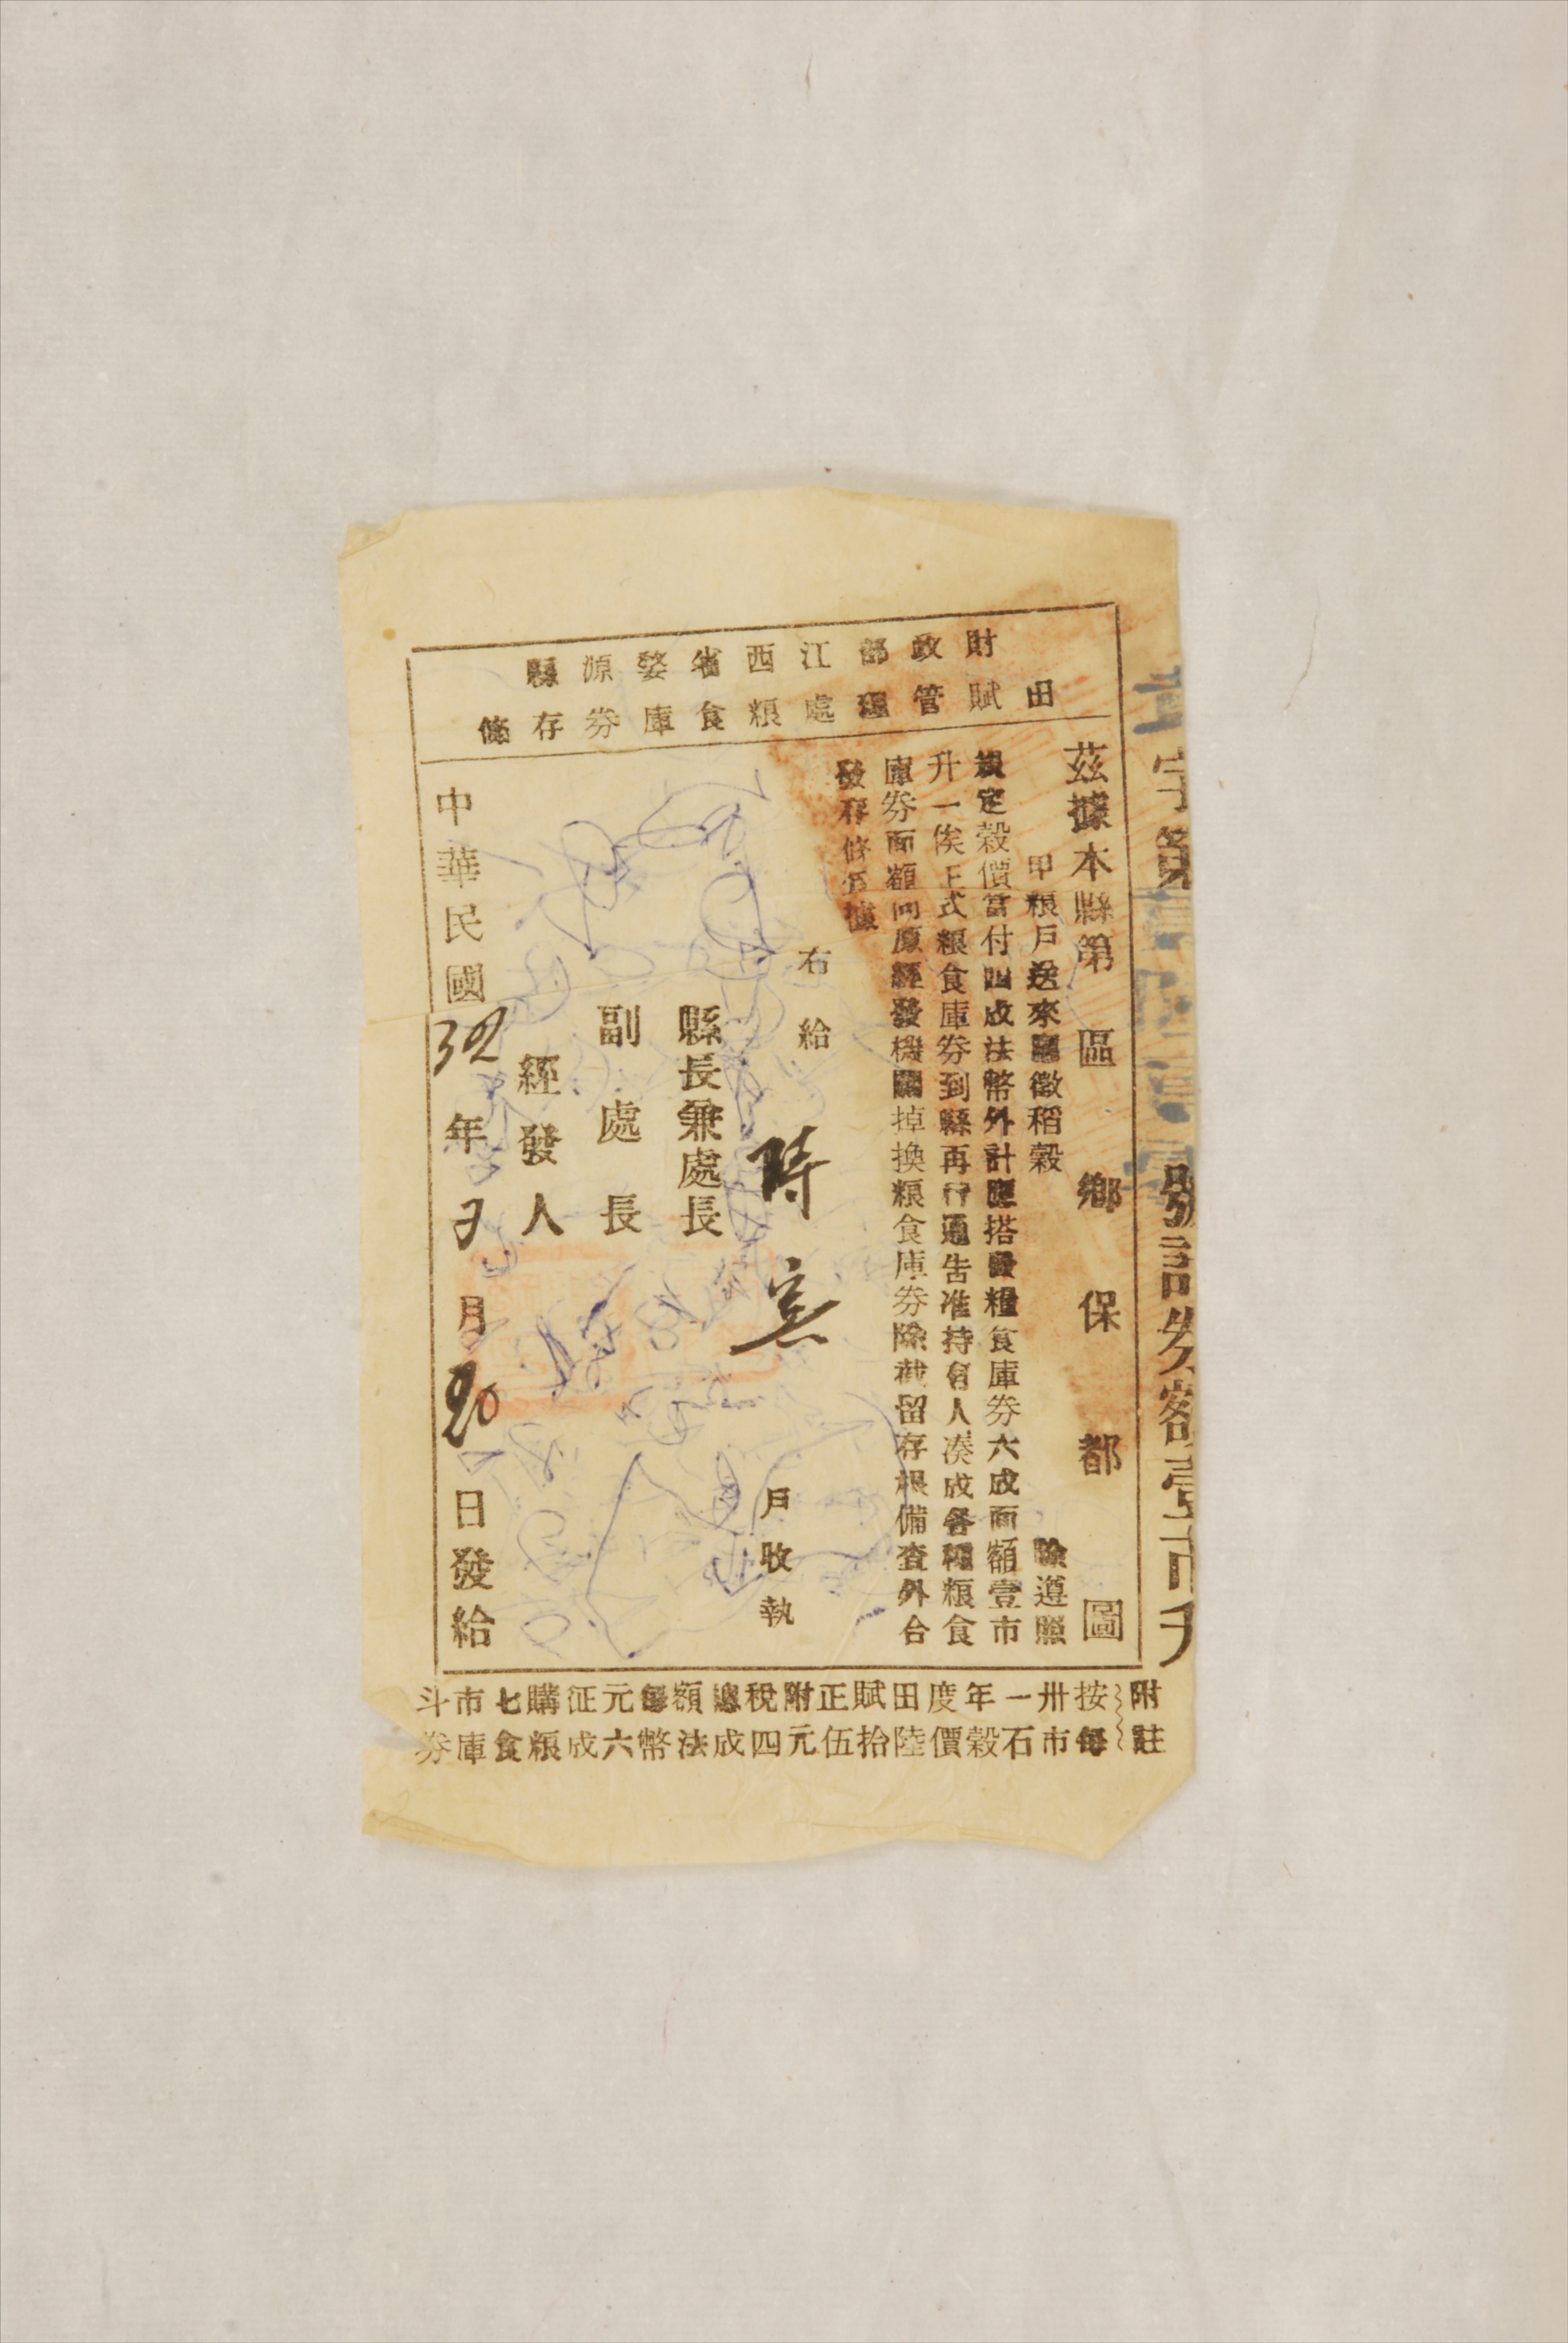 財政部江西省婺源縣
田賦管理處粮食庫券存條
字第　號計券額壹市升
茲據本縣第　區　鄉　保　都　圖
甲粮戶送來購徵稻穀　除遵照
規定穀價當付四成法幣外計應搭發糧食庫券六成面額壹市
升一俟正式粮食庫券到縣再行通告准持有人湊成各種粮食
庫券面額向原經發機關掉換粮食庫券除截留存根備查外合
發存條為據
右給
時　戶收執
縣長兼處長
副處長
經發人
中華民國32年　月20日發給
附註
按卅一年度田賦正附稅總額每元征購七市斗
每市石穀價陸拾伍元四成法幣六成粮食庫券